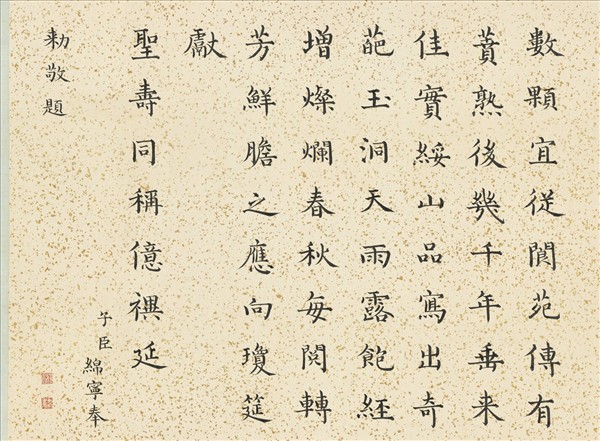 數顆宜從閬苑傳有
蕡熟後幾千年垂来
佳實綏山品寫出奇
葩玉洞天雨露飽經
増燦爛春秋每閱轉
芳鮮瞻之應向瓊筵
獻
聖壽同稱億禩延
子臣綿寧奉
勅敬題